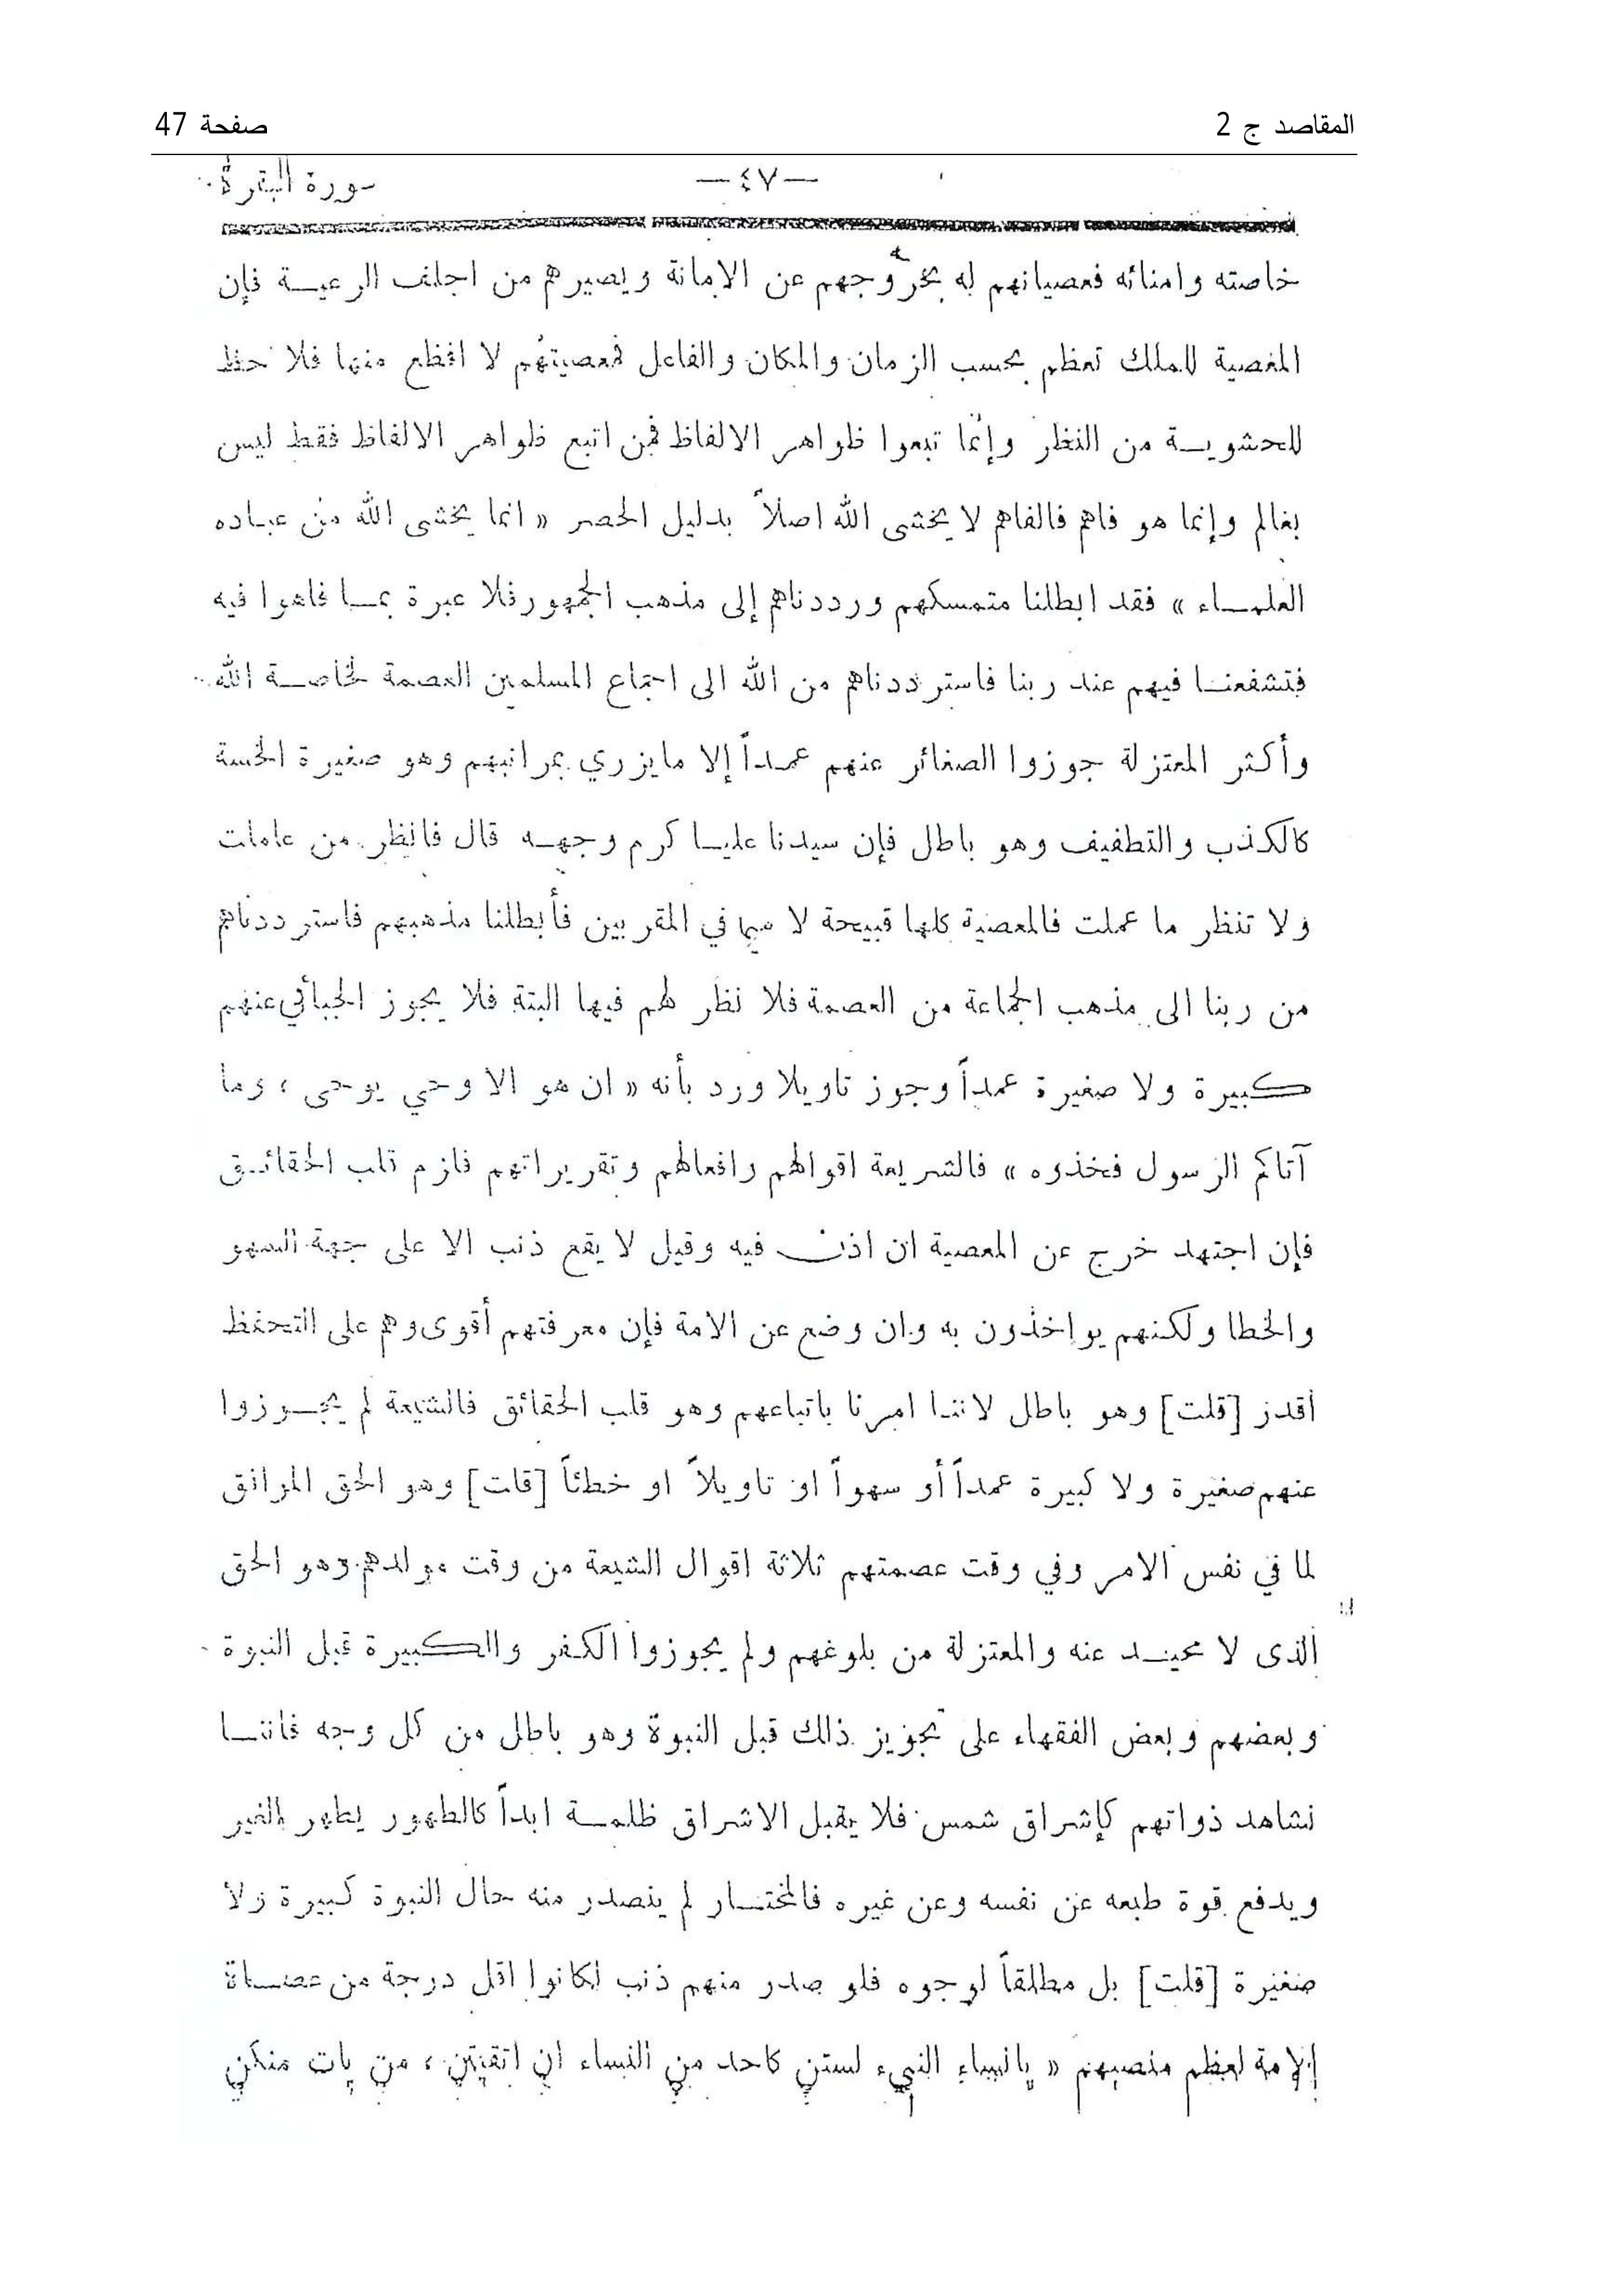 المقاصد ج 2 صفحة 47
—٤٧— سورة البقرة
خاصته وامنائه فعصيانهم له يخرجهم عن الامانة ويصيرهم من اجلف الرعية فإن
المعصية للملك تعظم بحسب الزمان والمكان والفاعل فمعصيتهم لا افظع منها فلا حظ
للحشوية من النظر وإنما تبعوا ظواهر الالفاظ فمن اتبع ظواهر الالفاظ فقط ليس
بعالم وإنما هو فاهم فالفاهم لا يخشى الله اصلاً بدليل الحصر « انما يخشى الله من عباده
العلماء » فقد ابطلنا متمسكهم ورددناهم إلى مذهب الجمهور فلا عبرة بما فاهوا فيه
فتشفعنا فيهم عند ربنا فاسترددناهم من الله الى اجماع المسلمين العصمة لخاصة الله
وأكثر المعتزلة جوزوا الصغائر عنهم عمداً إلا ما يزري بمراتبهم وهو صغيرة الخسة
كالكذب والتطفيف وهو باطل فإن سيدنا عليا كرم وجهه قال فانظر من عاملت
ولا تنظر ما عملت فالمعصية كلها قبيحة لا سيما في المقربين فأبطلنا مذهبهم فاسترددناهم
من ربنا الى مذهب الجماعة من العصمة فلا نظر لهم فيها البتة فلا يجوز الجبائي عنهم
كبيرة ولا صغيرة عمداً وجوز تاويلا ورد بأنه « ان هو الا وحي يوحى ، وما
آتاكم الرسول فخذوه » فالشريعة اقوالهم وافعالهم وتقريراتهم فلزم قلب الحقائق
فإن اجتهد خرج عن المعصية ان اذن فيه وقيل لا يقع ذنب الا على جهة السهو
والخطا ولكنهم يواخذون به وان وضع عن الامة فإن معرفتهم أقوى وهم على التحفظ
اقدر [قلت] وهو باطل لاننا امرنا باتباعهم وهو قلب الحقائق فالشيعة لم يجوزوا
عنهم صغيرة ولا كبيرة عمداً أو سهواً او تاويلاً او خطئاً [قلت] وهو الحق الموافق
لما في نفس الامر وفي وقت عصمتهم ثلاثة اقوال الشيعة من وقت مولدهم وهو الحق
الذى لا محيد عنه والمعتزلة من بلوغهم ولم يجوزوا الكفر والكبيرة قبل النبوة
وبعضهم وبعض الفقهاء على تجويز ذلك قبل النبوة وهو باطل من كل وجه فاننا
نشاهد ذواتهم كإشراق شمس فلا يقبل الاشراق ظلمة ابداً كالطهور يطهر الغير
ويدفع قوة طبعه عن نفسه وعن غيره فالمختار لم ينصدر منه حال النبوة كبيرة ولا
صغيرة [قلت] بل مطلقاً لوجوه فلو صدر منهم ذنب لكانوا اقل درجة من عصاة
الامة لعظم منصبهم « يانساء النبيء لستن كاحد من النساء ان اتقيتن ، من يات منكن